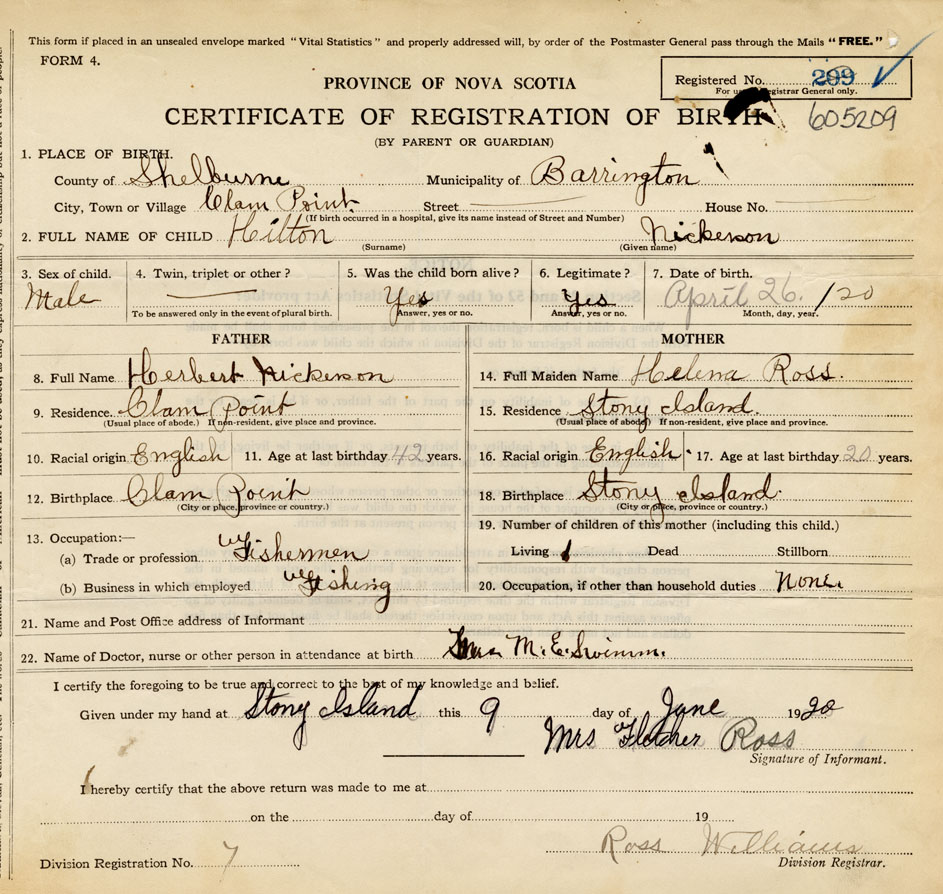 This form if placed in an unsealed envelope marked "Vital Statistics" and properly addressed will, by order of the Postmaster General pass through the Mails "FREE."
FORM 4.
Registered No. 209
For use Registrar General only.
PROVINCE OF NOVA SCOTIA
CERTIFICATE OF REGISTRATION OF BIRTH 605209
(BY PARENT OR GUARDIAN)
1. PLACE OF BIRTH.
County of Shelburne Municipality of Barrington
City, Town or Village Clam Point Street House No.
(If birth occurred in a hospital, give its name instead of Street and Number)
2. FULL NAME OF CHILD Hilton Nickerson
(Surname) (Given name)
3. Sex of child. 4. Twin, triplet or other? 5. Was the child born alive? 6. Legitimate? 7. Date of birth.
Male Yes Yes April 26. /20
To be answered only in the event of plural birth. Answer, yes or no. Answer, yes or no. Month, day, year.
FATHER MOTHER
8. Full Name Herbert Nickerson 14. Full Maiden Name Helena Ross.
9. Residence. Clam Point 15. Residence Stony Island.
(Usual place of abode.) If non-resident, give place and province. (Usual place of abode) If non-resident, give place and province.
10. Racial origin English 11. Age at last birthday 42 years. 16. Racial origin English 17. Age at last birthday 20 years.
12. Birthplace Clam Point 18. Birthplace Stony Island.
(City or place, province or country.) (City or place, province or country.)
13. Occupation:— 19. Number of children of this mother (including this child.)
(a) Trade or profession Fishermen Living 1 Dead Stillborn
(b) Business in which employed Fishing 20. Occupation, if other than household duties None.
21. Name and Post Office address of Informant
22. Name of Doctor, nurse or other person in attendance at birth Mrs. M. E. Swimm.
I certify the foregoing to be true and correct to the best of my knowledge and belief.
Given under my hand at Stony Island this 9 day of June 1920
Mrs Fletcher Ross
Signature of Informant.
I hereby certify that the above return was made to me at
on the day of 19
Ross Williams
Division Registration No. 7 Division Registrar.